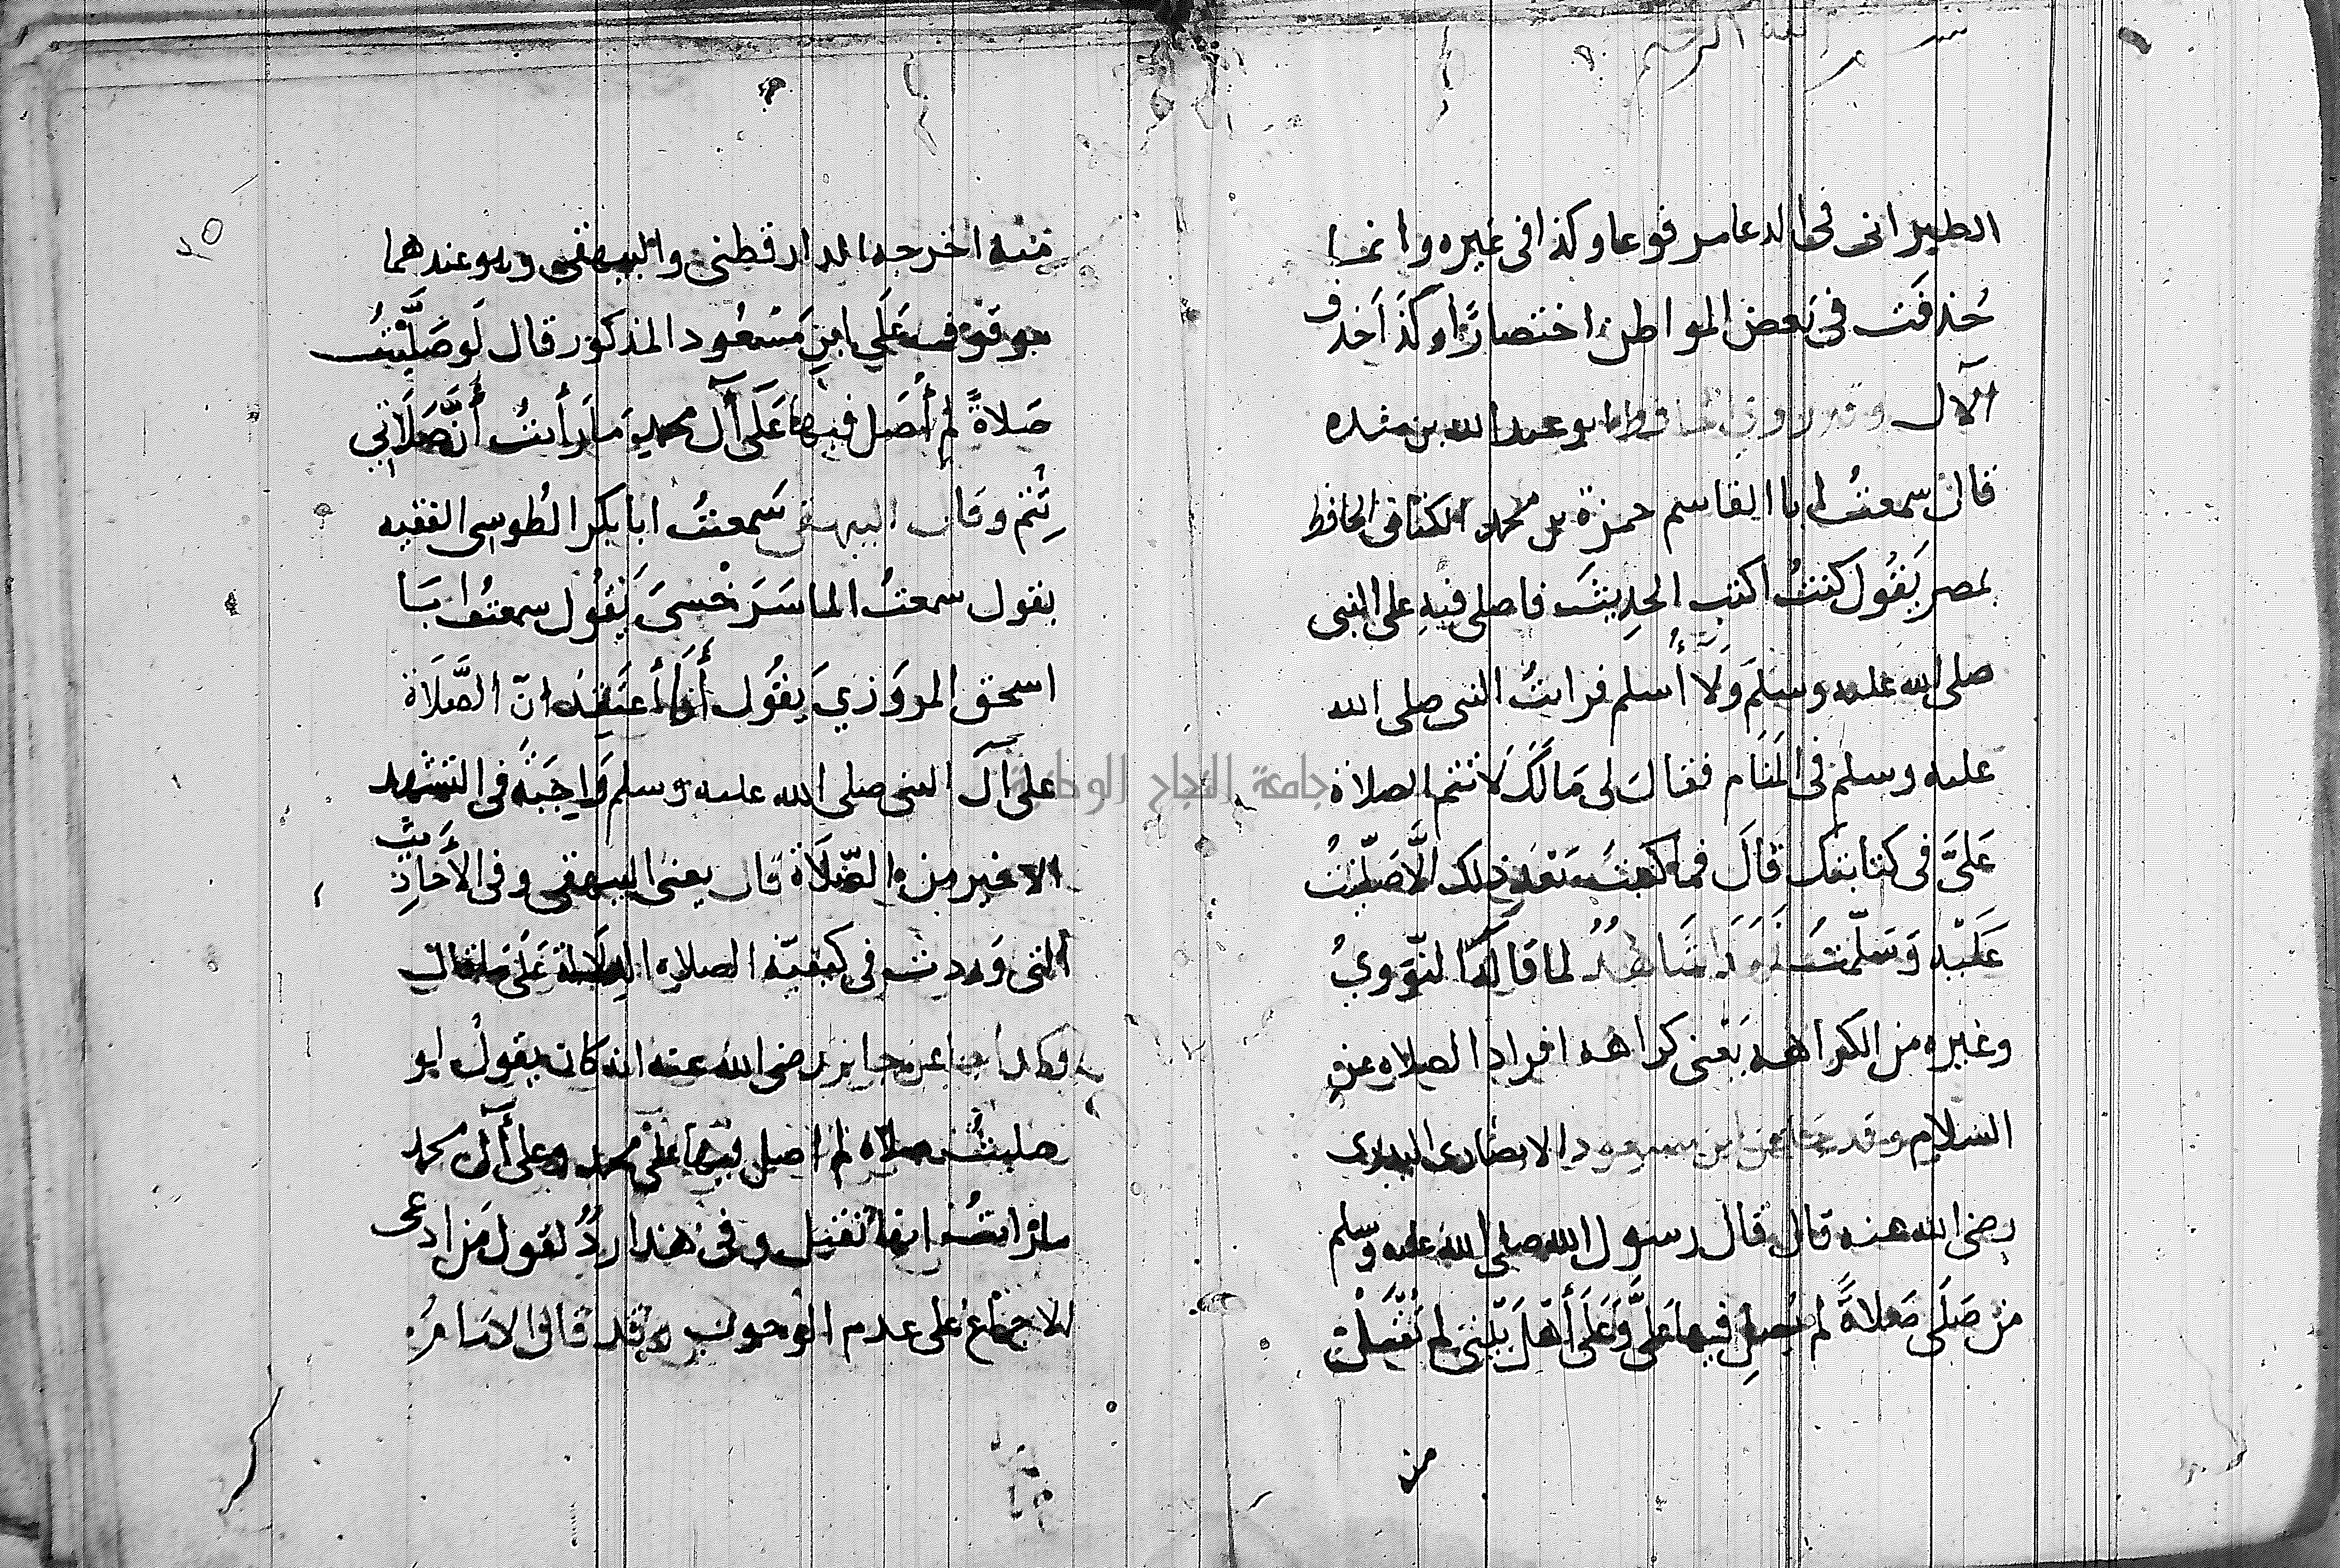 الطبرانى فى الدعا مرفوعا وكذا فى غيره وانما
حُذفَت فى بَعض المواطن اختصارًا وكذَا حَذف
الآل وقد روى الحافظ ابو عبد الله بن منده
قال سمعتُ ابا القاسم حمزة بن محمد الكنانى الحافظ
بمصر يَقُول كنتُ اكتب الحدِيثَ فاصلى فيهِ على النبى
صلى الله عليه وسلم وَلَآ أُسلم فرايتُ النبى صلى الله
عليه وسلم فى المنَام فقال لى مَالَكَ لا تتم الصلاة
عَلىَّ فى كتابتك قَالَ فما كتبتُ بَعْد ذلك الَّا صَلّيتُ
عَلَيْه وَسَلّمتُ شَاهدُ لما قالَه النّوَوِيُ
وغيره من الكراهه يَعنى كراهه افراد الصلاه عن
السلام وقد جا عن ابن مسعود الانصارى البدرى
رضى الله عنه قال قال رسول الله صلى الله عليه وسلم
من صَلَى صَلاةً لم يُصلِ فيها عَلىَّ وَعَلَى أهْل بَيتى لم تُقْبَلْ
من
٢٥
منه اخرجه الدارقطنى والبيهقى وهو عندهما
موقوف عَلَى ابنِ مَسْعُود المذكور قال لَو صَلَّيْتُ
صَلاةً لم أُصَل فيها عَلَى آل محمدٍ مَا رَأيتُ أنَّ صَلَاتِي
تُتِم وقَال البيهقى سَمعتُ ابا بكر الطُوسِى الفقيه
يقول سمعتُ الماسَرَخْسىَ يَقُول سمعتُ ابَا
اسحق المروَزي يقُول أَنَا أَعتَقِدُ انّ الصَّلَاة
على آل النبى صلى الله عليه وسلم وَاجبَةً فى التشهد
الاخير من الصَّلَاة قال يعنى البيهقى وفى الأحَاديث
التى وَردت فى كيفيّة الصلاه الدلالة عَلَى ما قال
وكذا جا عن جابر رضى الله عنه انه كان يقولُ لو
صليتُ صلاه لم اصل فيها على محمد وعلى آل محمد
ما رايتُ انها تُقبل وفى هذا ردُّ لقول مَن ادعى
الاجماع على عدم الوجوب وقد قال الامامُ
جامعة النجاح الوطنية